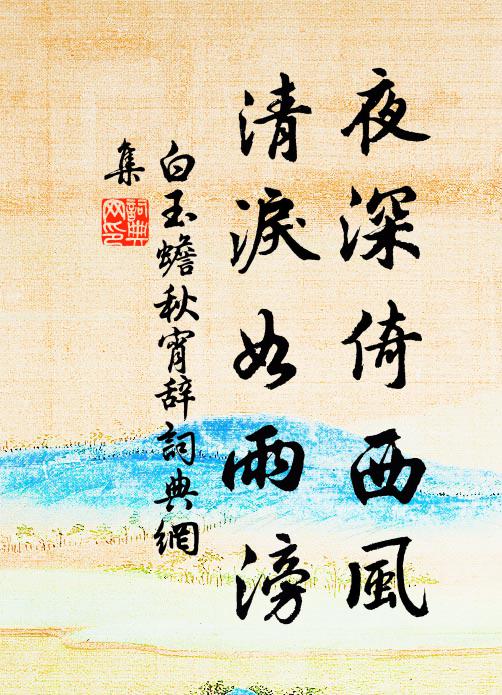 夜深倚西風
清淚如雨滂
白玉蟾秋宵辞詞典網
集
詞典
网印